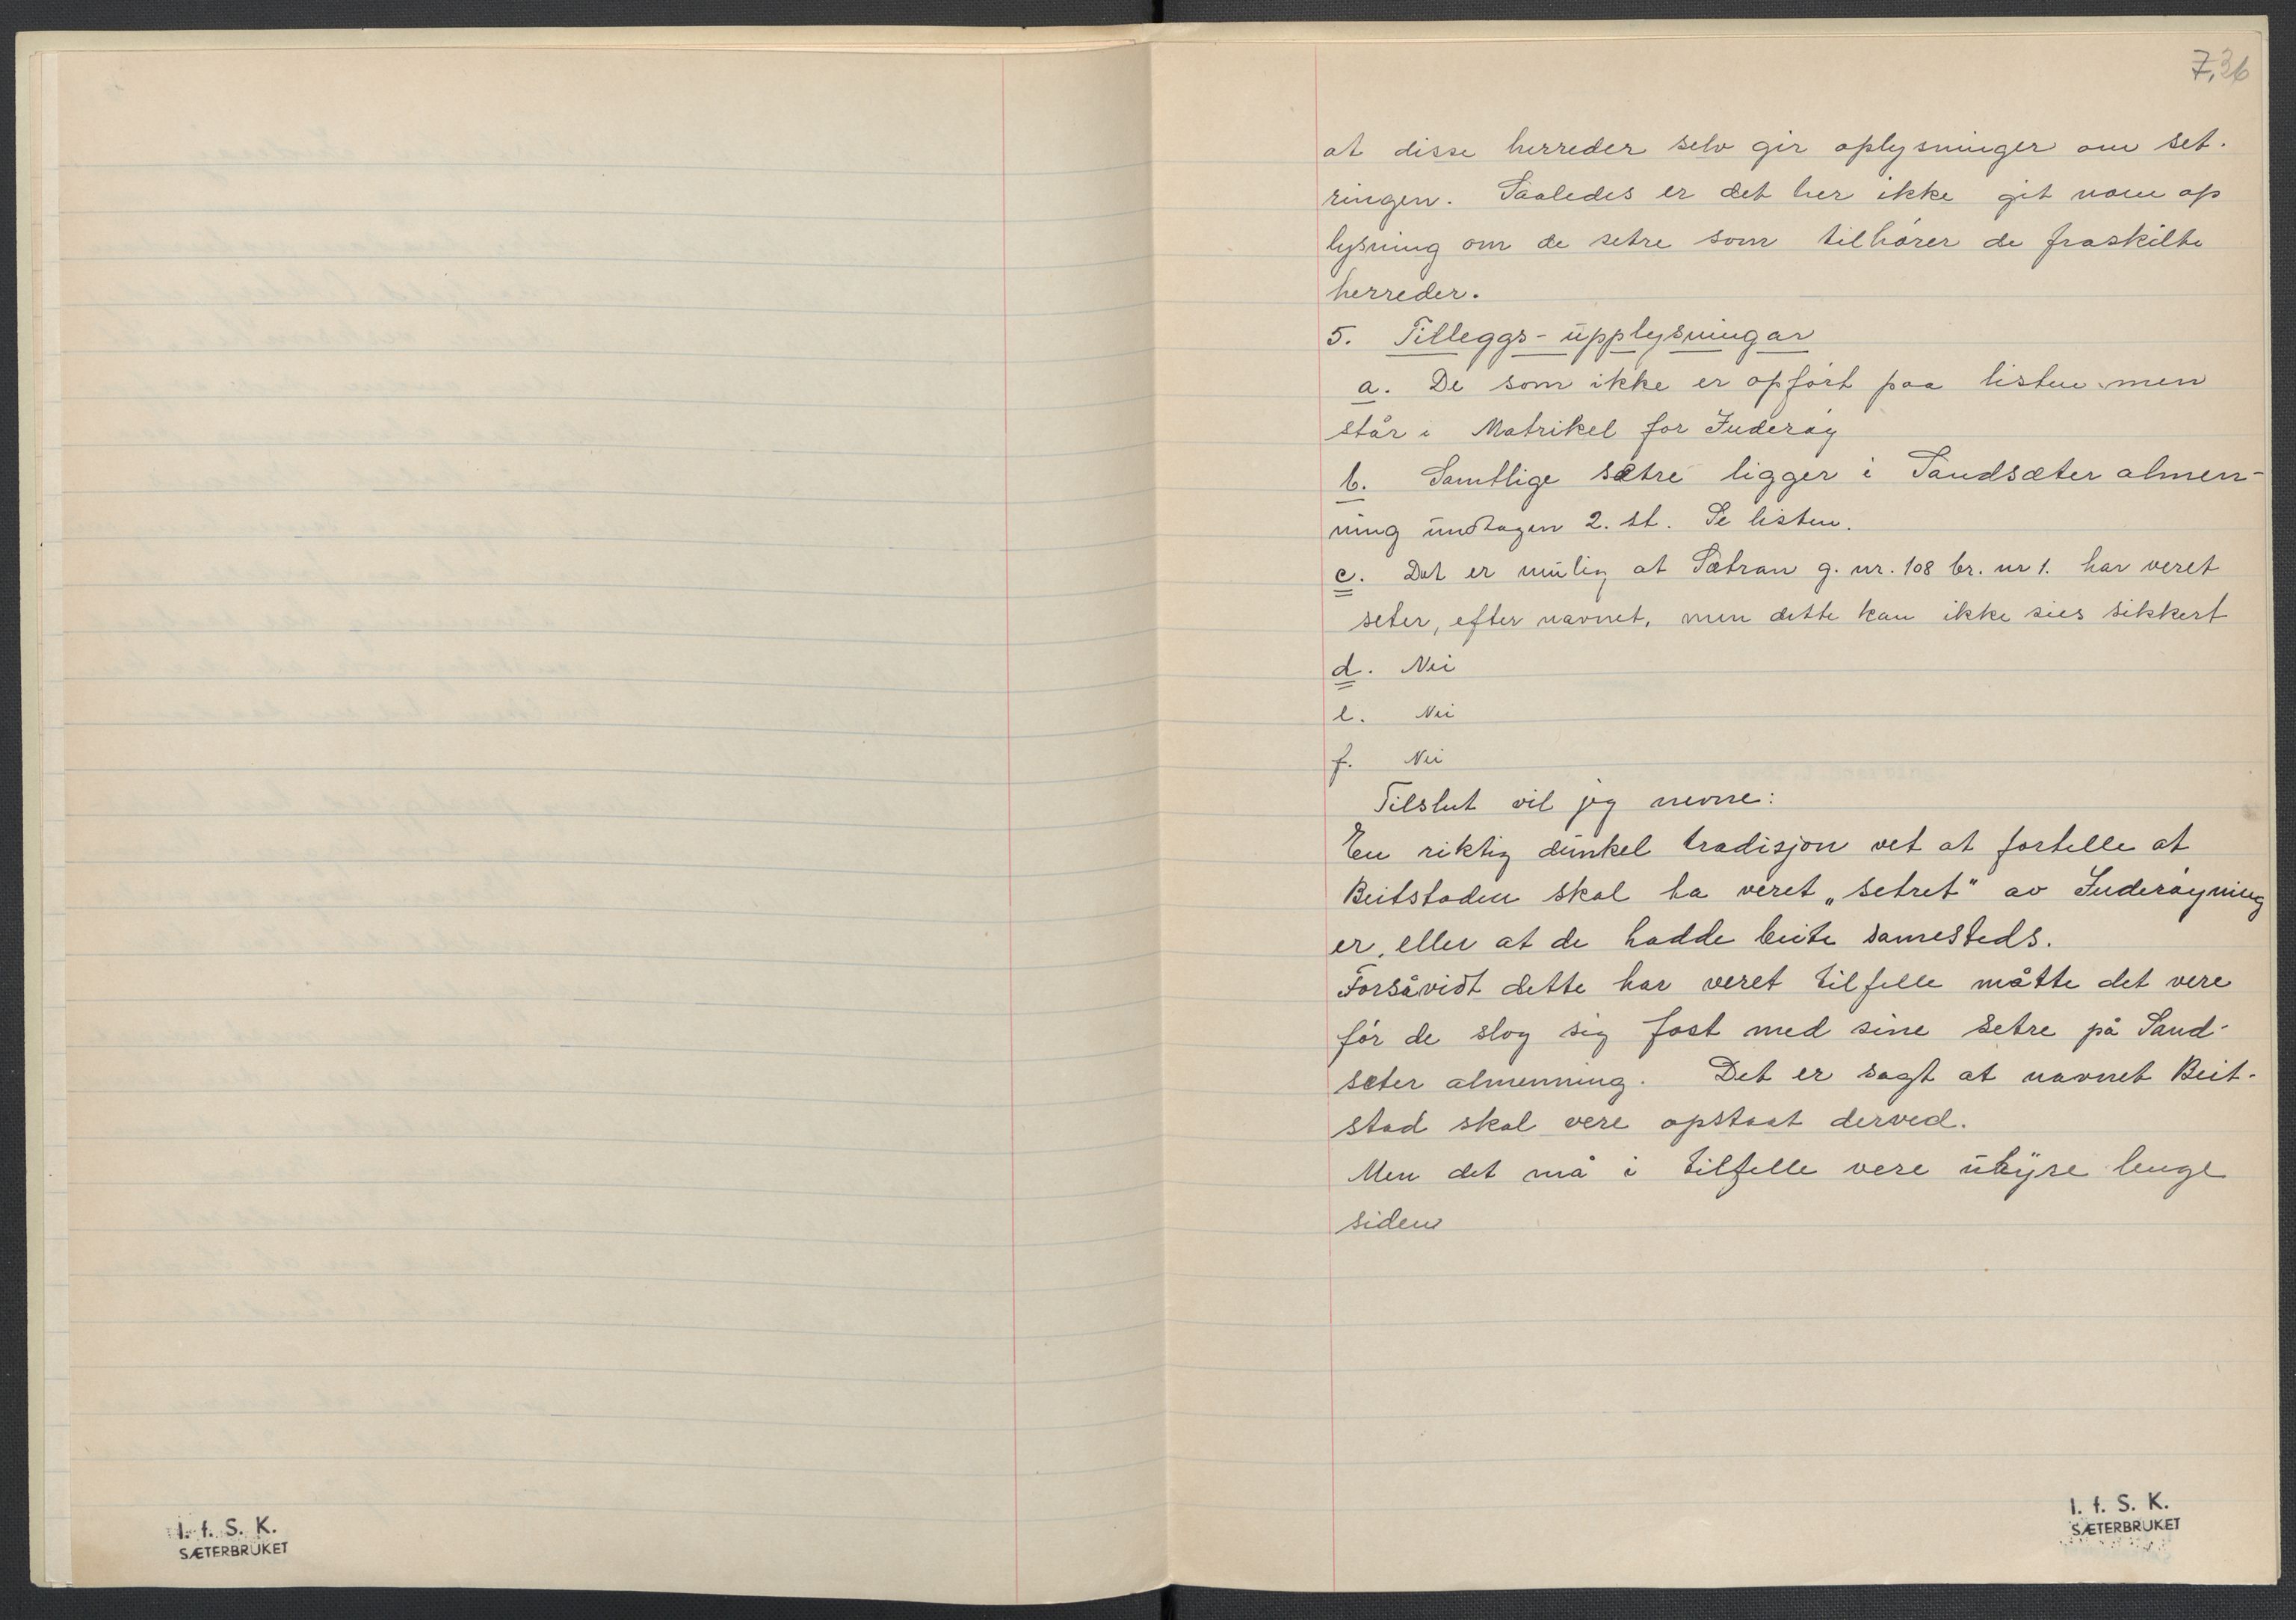 I. f. S. K.
SÆTERBRUKET
7,36
at disse herreder selv gir oplysninger om set-
ringen. Saaledes er det her ikke git noen op
lysning om de setre som tilhører de fraskilte
herreder.
5. Tilleggs-upplysningar
a. De som ikke er opført paa listen men
står i Matrikel for Inderøy
b. Samtlige sætre ligger i Sandsæter almen-
ning undtagen 2. st. Se listen.
c. Det er mulig at Sætran g. nr. 108 br. nr 1. har veret
seter, efter navnet, men dette kan ikke sies sikkert
d. Nei
e. Nei
f. Nei
Tilslut vil jeg nevne:
En riktig dunkel tradisjon vet at fortelle at
Beitstaden skal ha veret „setret" av Inderøyning
er, eller at de hadde beite samesteds.
Forsåvidt dette har veret tilfelle måtte det vere
før de slog sig fast med sine setre på Sand-
seter almenning. Det er sagt at navnet Beit-
stad skal vere opstaat derved.
Men det må i tilfelle vere uhyre lenge
siden
I. f. S. K.
SÆTERBRUKET